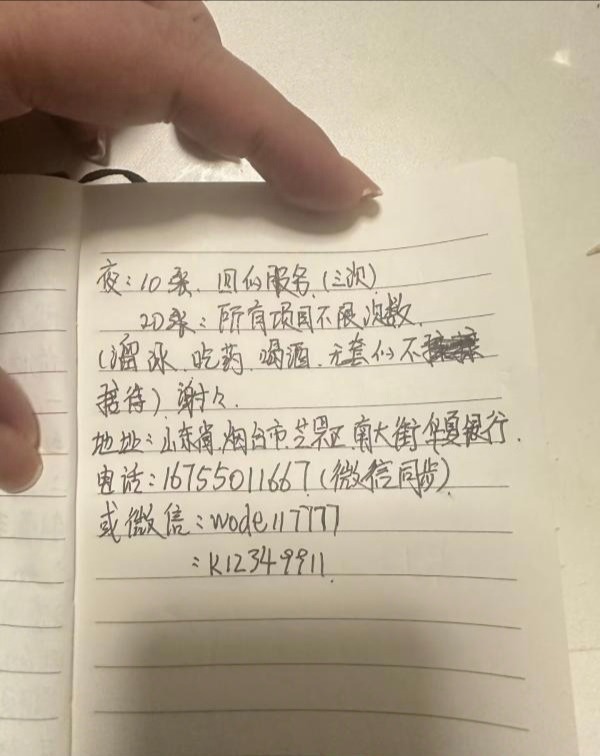 夜：10张．回的服务（三次）
20张：所有项目不限次数．
（溜冰．吃药．喝酒．无套的不
接待）谢谢．
地址：山东省．烟台市．芝罘区．南大街华夏银行．
电话：16755011667（微信同步）
或微信：wode117777
：k12349911